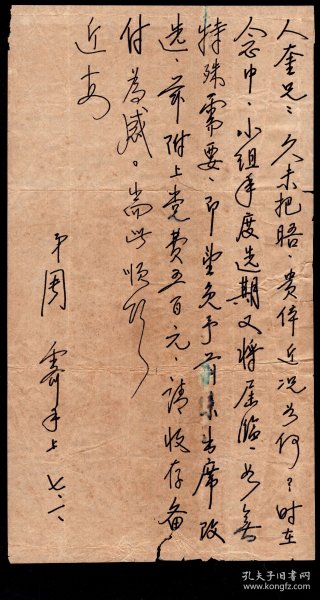 人奎兄：久未把晤，贵体近况如何？时在
念中，小组年度选期又将届临，如无
特殊需要，即望免予前来出席改
选，兹附上党费五百元，请收存备
付为感。耑此顺颂
近安
弟周 霽手上 七.二.
孔夫子旧书网
www.kongfz.com